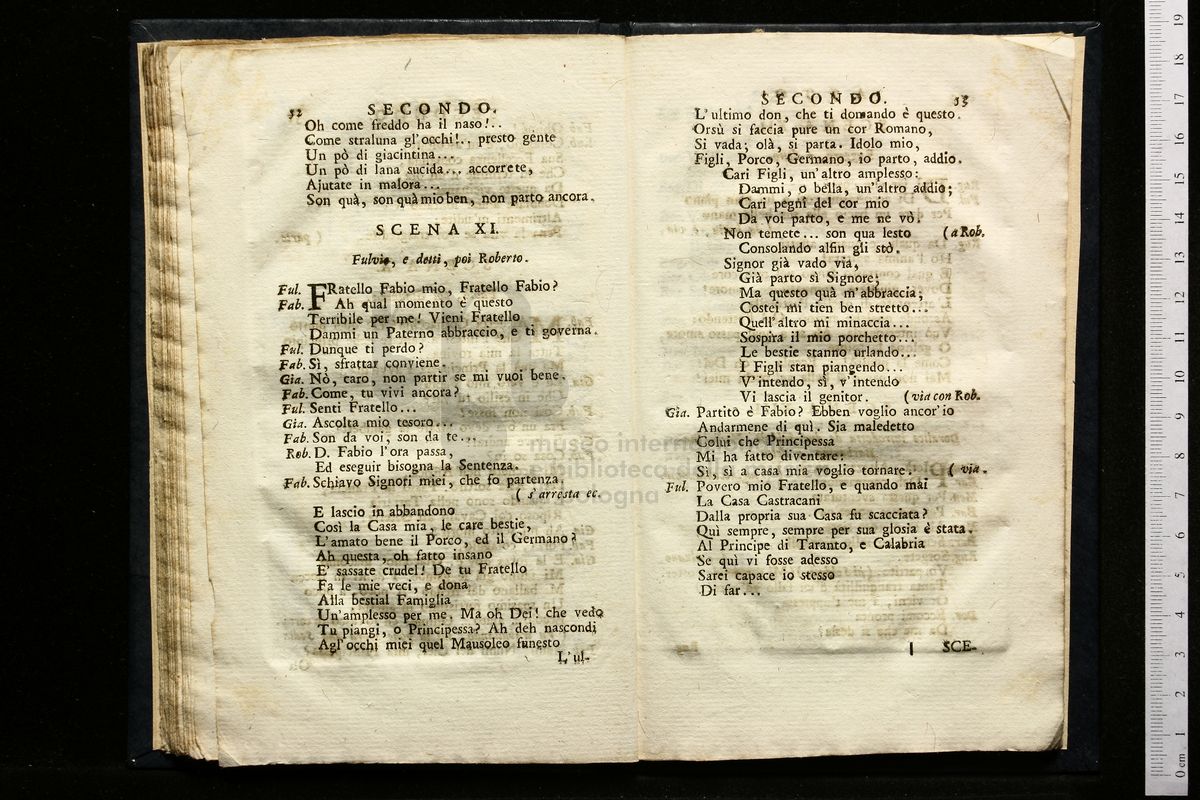 52 SECONDO.
Oh come freddo ha il naso!..
Come straluna gl'occhi!.. presto gente
Un pò di giacintina...
Un pò di lana sucida... accorrete,
Ajutate in malora...
Son quà, son quà mio ben, non parto ancora.
SCENA XI.
Fulvio, e detti, poi Roberto.
Ful. FRatello Fabio mio, Fratello Fabio?
Fab. Ah qual momento è questo
Terribile per me! Vieni Fratello
Dammi un Paterno abbraccio, e ti governa.
Ful. Dunque ti perdo?
Fab. Sì, sfrattar conviene.
Gia. Nò, caro, non partir se mi vuoi bene.
Fab. Come, tu vivi ancora?
Ful. Senti Fratello...
Gia. Ascolta mio tesoro...
Fab. Son da voi, son da te...
Rob. D. Fabio l'ora passa,
Ed eseguir bisogna la Sentenza.
Fab. Schiavo Signori miei, che fo partenza.
( s'arresta ec.
E lascio in abbandono
Così la Casa mia, le care bestie,
L'amato bene il Porco, ed il Germano?
Ah questa, oh fatto insano
E' sassate crudel! De tu Fratello
Fa le mie veci, e dona
Alla bestial Famiglia
Un'amplesso per me. Ma oh Dei! che vedo
Tu piangi, o Principessa? Ah deh nascondi
Agl'occhi miei quel Mausoleo funesto
L'ul-
SECONDO. 53
L'ultimo don, che ti domando è questo.
Orsù si faccia pure un cor Romano,
Si vada; olà, si parta. Idolo mio,
Figli, Porco, Germano, io parto, addio.
Cari Figli, un'altro amplesso:
Dammi, o bella, un'altro addio;
Cari pegni del cor mio
Da voi parto, e me ne vò.
Non temete... son qua lesto (a Rob.
Consolando alfin gli stò.
Signor già vado via,
Già parto sì Signore;
Ma questo quà m'abbraccia;
Costei mi tien ben stretto...
Quell'altro mi minaccia...
Sospira il mio porchetto...
Le bestie stanno urlando...
I Figli stan piangendo...
V'intendo, sì, v'intendo
Vi lascia il genitor. (via con Rob.
Gia. Partitò è Fabio? Ebben voglio ancor'io
Andarmene di quì. Sia maledetto
Colui che Principessa
Mi ha fatto diventare:
Sì, sì a casa mia voglio tornare. ( via.
Ful. Povero mio Fratello, e quando mai
La Casa Castracani
Dalla propria sua Casa fu scacciata?
Quì sempre, sempre per sua glosia è stata.
Al Principe di Taranto, e Calabria
Se quì vi fosse adesso
Sarei capace io stesso
Di far...
SCE-